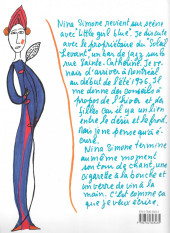 Nina Simone revient sur scène
avec "Little girl blue". Je discute
avec le propriétaire du "Soleil
Levant", un bar de jazz, sur la
rue Sainte-Catherine. Je viens
d'arriver à Montréal
au début de l'été 1976. Il
me donne des conseils à
propos de l'hiver et des
filles car il y a un lien
entre le désir et le froid.
Moi je ne pense qu'à é-
crire.
Nina Simone termine
au même moment
son tour de chant, une
cigarette à la bouche et
un verre de vin à la
main. C'est comme ça
que je veux écrire.